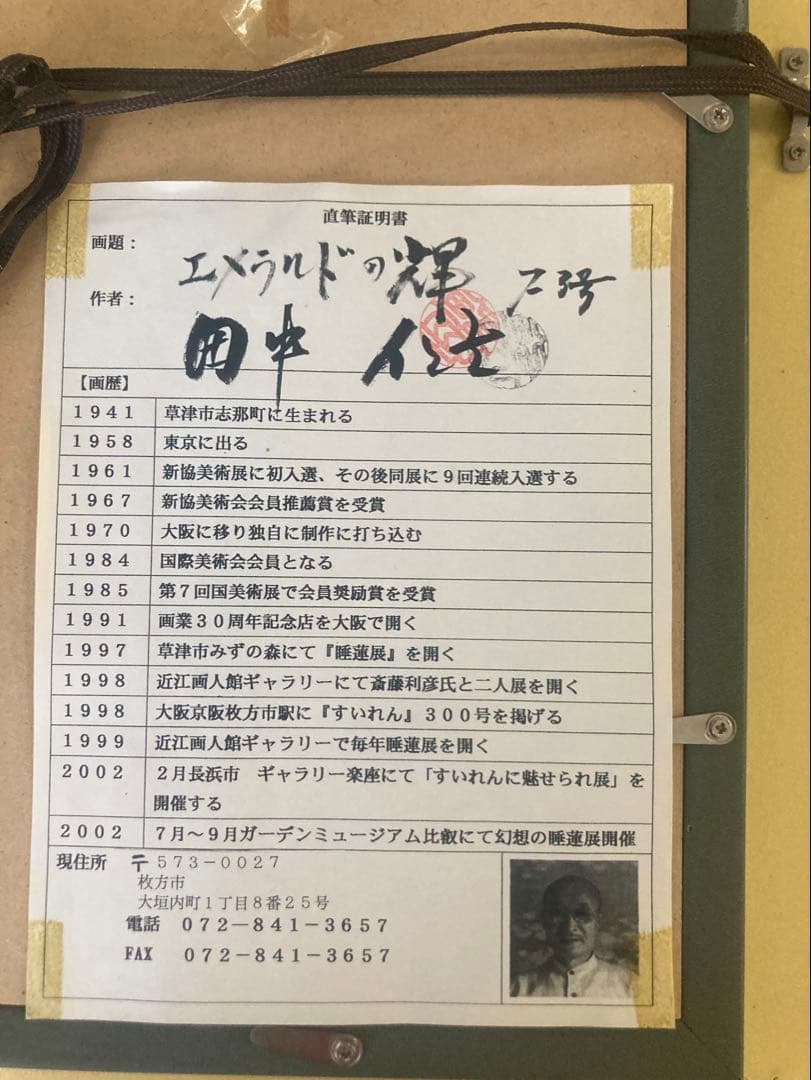 直筆証明書
画題：
エメラルドの輝
3号
作者：
田中
【画歴】
1941 草津市志那町に生まれる
1958 東京に出る
1961 新協美術展に初入選、その後同展に9回連続入選する
1967 新協美術会会員推薦賞を受賞
1970 大阪に移り独自に制作に打ち込む
1984 国際美術会会員となる
1985 第7回国美術展で会員奨励賞を受賞
1991 画業30周年記念店を大阪で開く
1997 草津市みずの森にて『睡蓮展』を開く
1998 近江画人館ギャラリーにて斎藤利彦氏と二人展を開く
1998 大阪京阪枚方市駅に『すいれん』300号を掲げる
1999 近江画人館ギャラリーで毎年睡蓮展を開く
2002 2月長浜市　ギャラリー楽座にて「すいれんに魅せられ展」を
開催する
2002 7月～9月ガーデンミュージアム比叡にて幻想の睡蓮展開催
現住所 〒573-0027
枚方市
大垣内町1丁目8番25号
電話 072-841-3657
FAX 072-841-3657